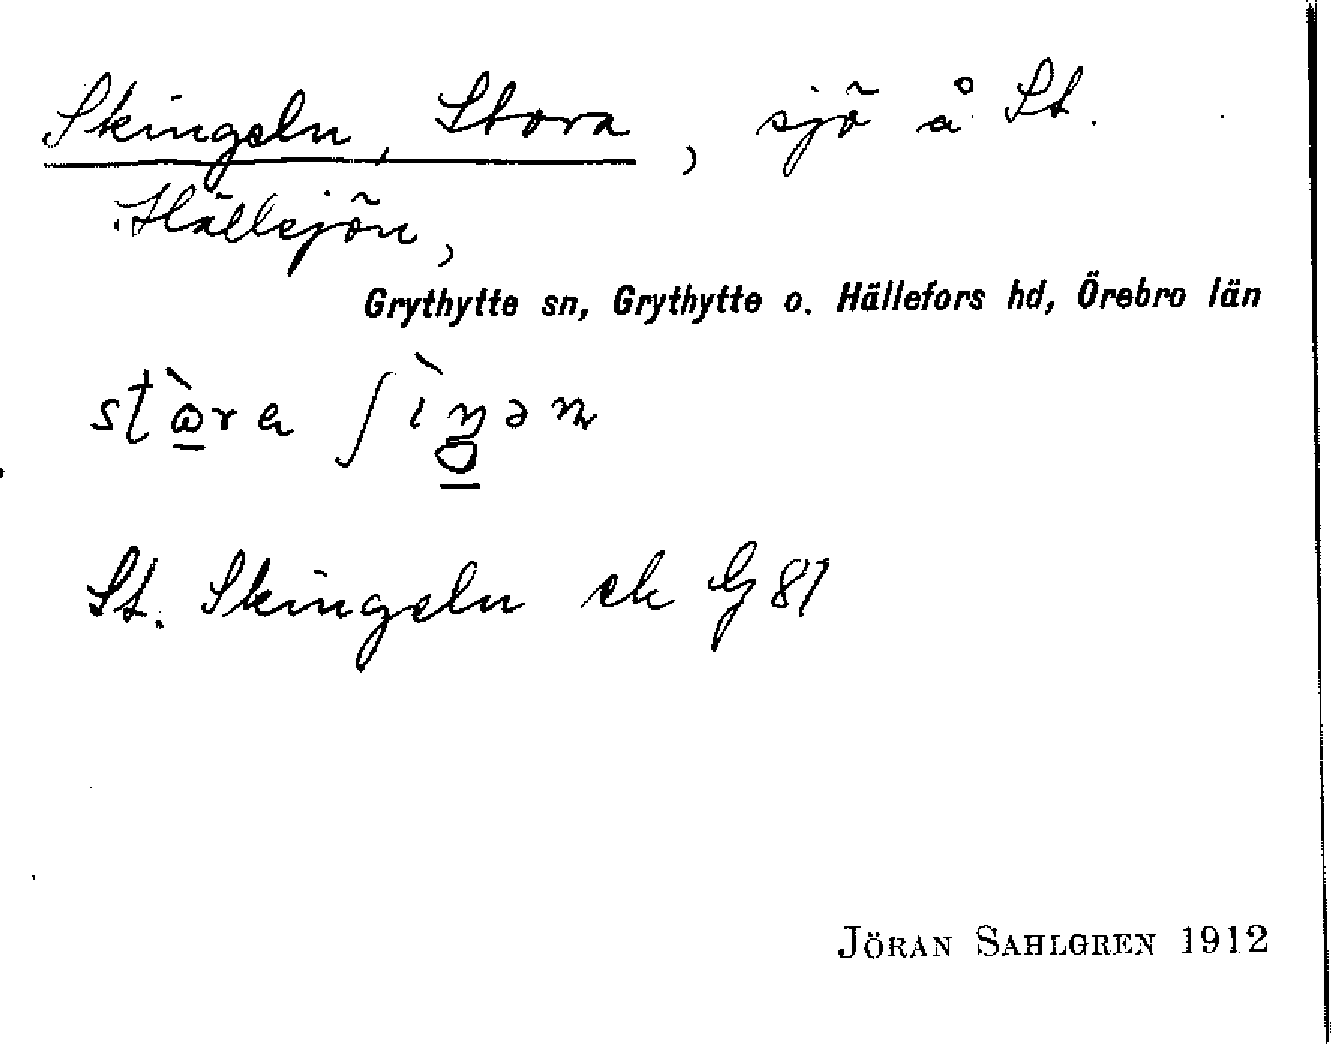 Skingeln, Stora, sjö å St.
Hällsjön,
Grythytte sn, Grythytte o. Hällefors hd, Örebro län
stò̲ra ʃìŋ̲ən
St. Skingeln ek G 81
JÖRAN SAHLGREN 1912